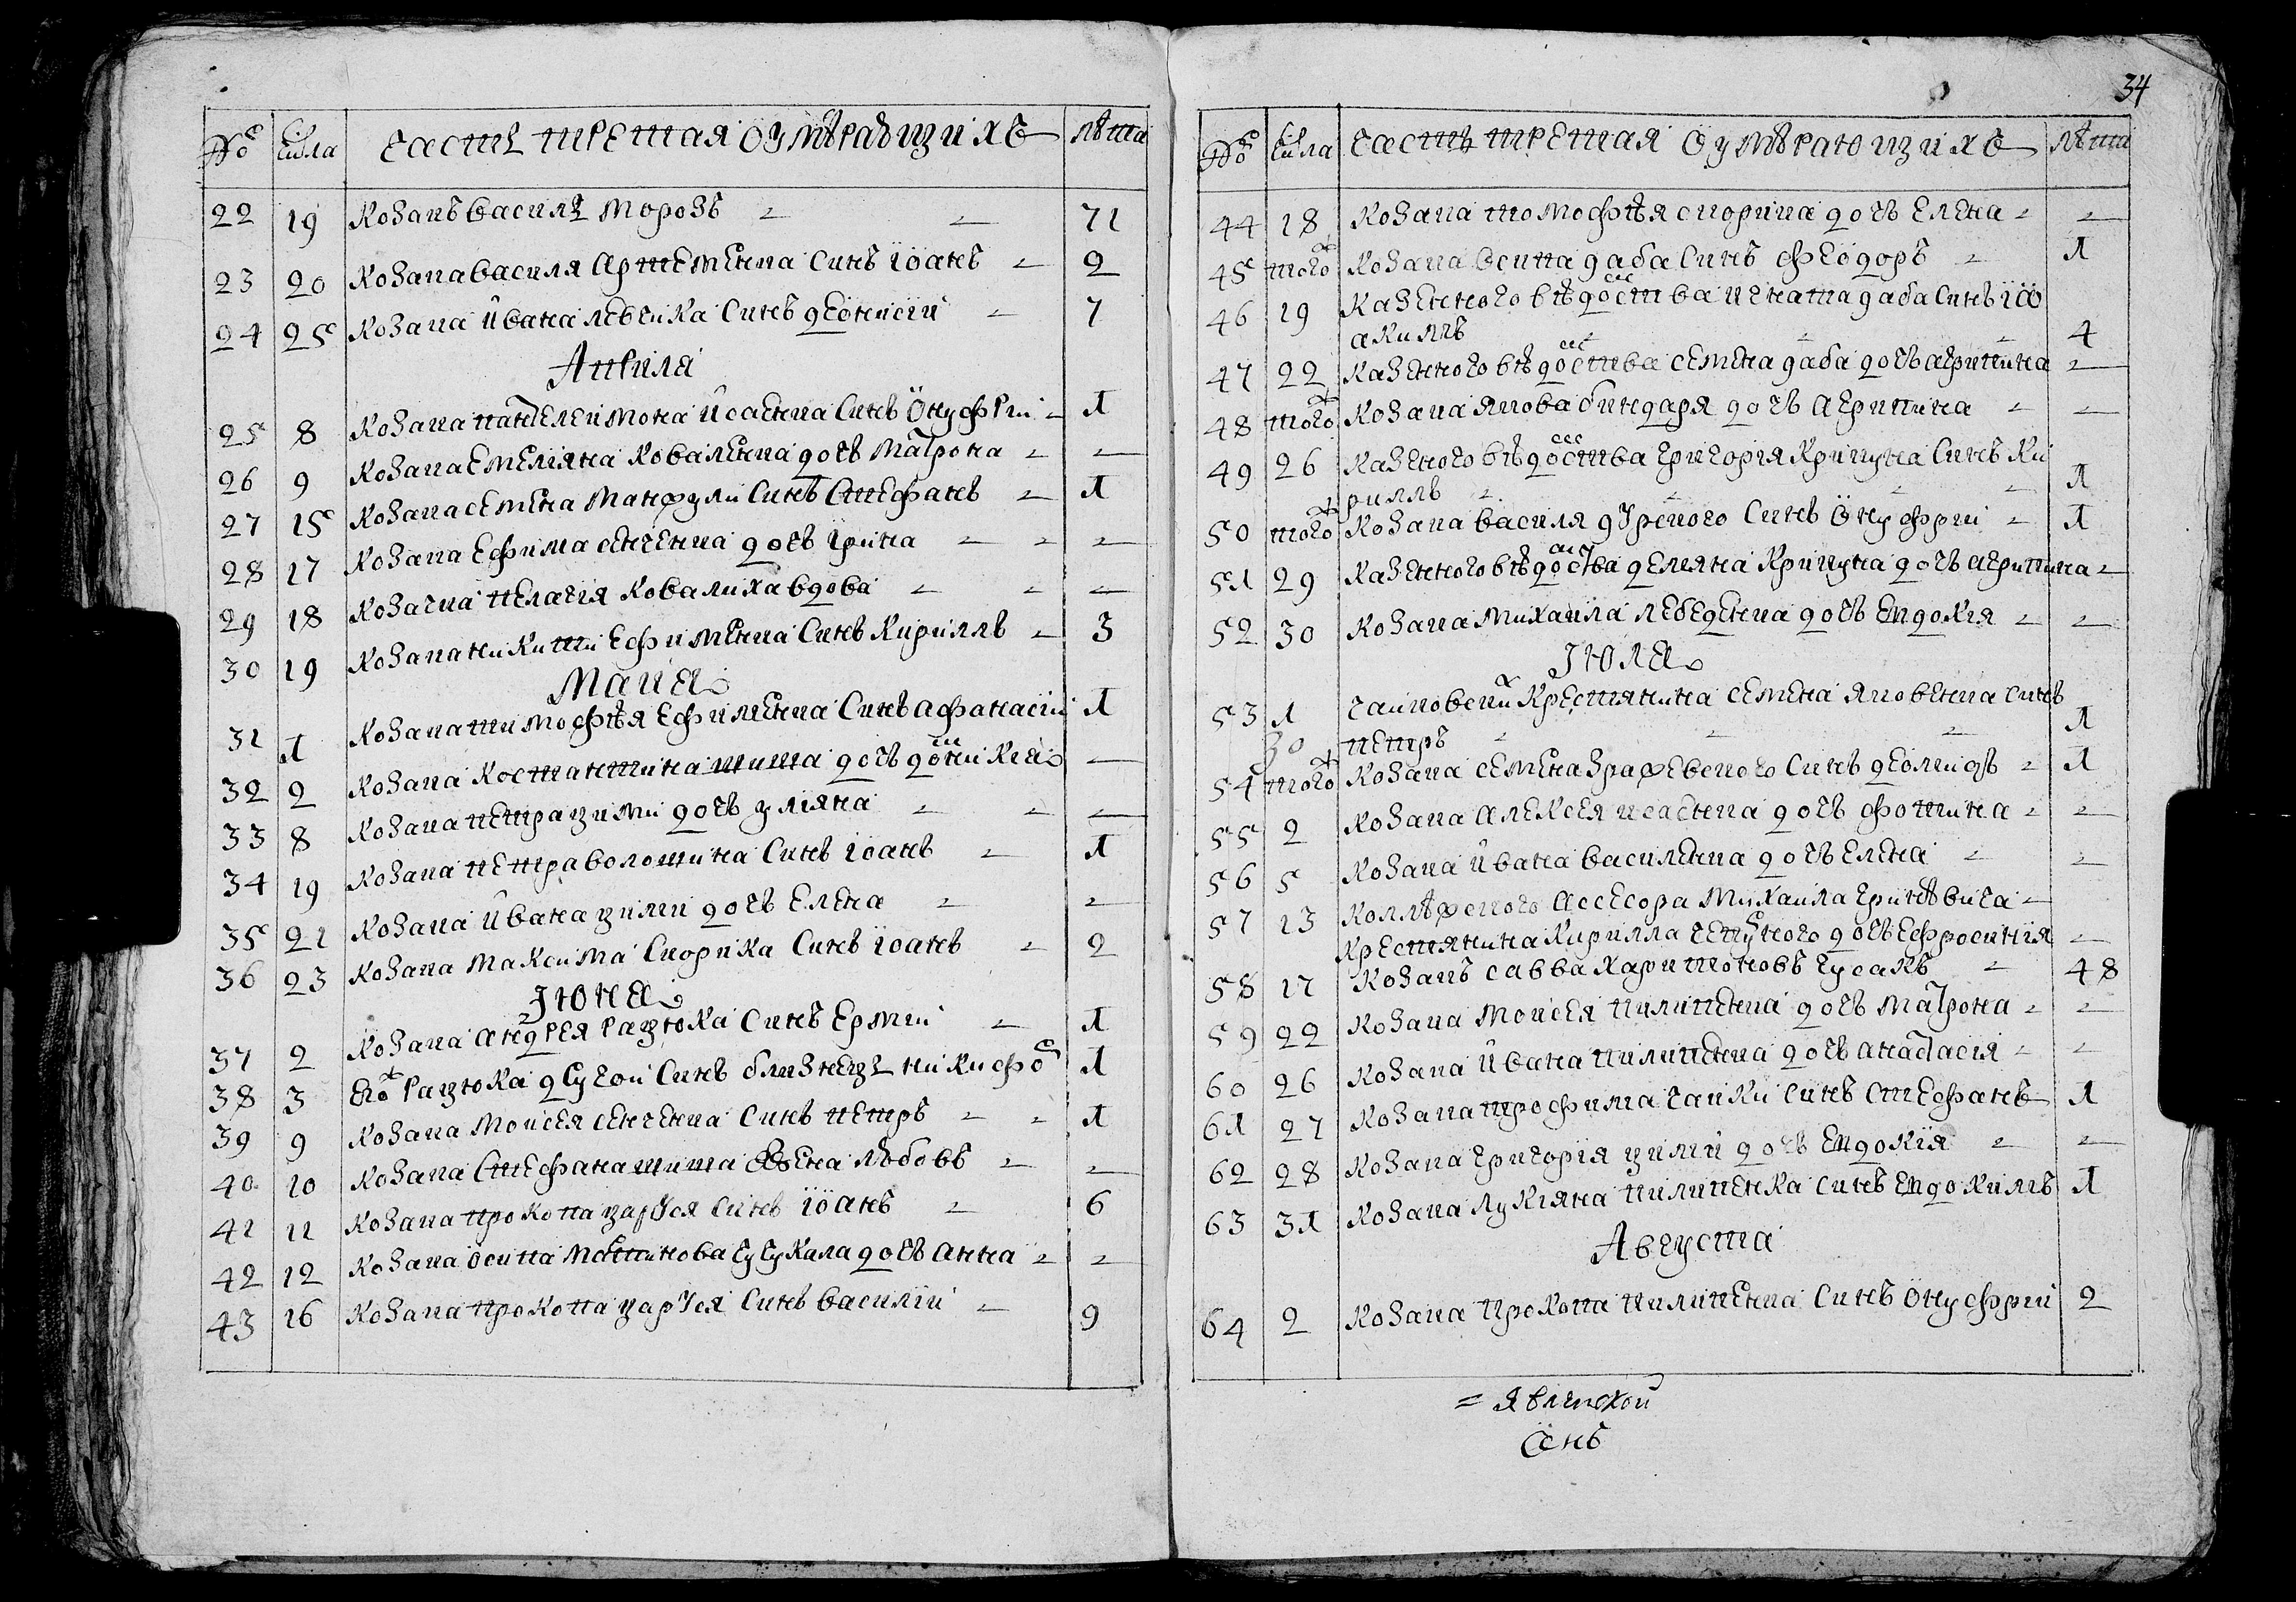 № Числа Часть третая о умѣрающихъ лѣта
22 19 Козакъ василь морозъ 71
23 20 Козака василя Артеменка Синъ іоанъ 2
24 25 Козака івана левчика Синъ деонисій 7
Априля
25 8 Козака пантелеимона ісаенка Синъ Онуфрій 1
26 9 Козака Емеліяна коваленка дочь матрона
27 15 Козака семена манжули Синъ Стефанъ 1
28 17 Козака Ефима сенченка дочь ірина
29 18 Козачка пелагія ковалиха вдова
30 19 Козака никити Ефименка Синъ Кириллъ 3
Маиа
31 1 Козака тимофѣя Ефименка Синъ афанасій 1
32 2 Козака костантина шиша дочь домникія
33 8 Козака петра цими дочь уліяна
34 19 Козака петра волошина Синъ іоанъ 1
35 21 Козака івана цими дочь Елена
36 23 Козака максима Скорика Синъ іоанъ 2
Іюна
37 2 Козака андрея рацюка Синъ Ермій 1
38 3 Его рацюка другой Синъ близнецъ никифо 1
39 9 Козака моисея сенченка Синъ петръ 1
40 10 Козака Стефана шиша жена любовь
41 11 Козака прокопа царуся Синъ іоанъ 6
42 12 Козака осипа мартинова чучукала дочь анна
43 16 Козака прокопа царуся Синъ василій 9
34
№ Числа Часть третая о умѣрающихъ лѣта
44 18 Козака томофѣя скорика дочь Елена
45 того Козака осипа даба Синъ Феодоръ 1
46 19 Казенного вѣдоства игната даба Синъ іо
акимъ 4
47 22 Казенного вѣдоства семена даба дочь агрипина
48 того Козака якова бондаря дочь агрипина
49 26 Казеного вѣдоства григорія Крипуна Синъ Ки
риллъ 1
50 того Козака василя дурного Синъ Онуфрій 1
51 29 Казенного вѣдоства демяна Крипуна дочь агрипина
52 30 Козака михаила лебеденка дочь Евдокія
Іюля
53 1 Крестянина семена яковенка Синъ
30 петръ 1
54 того Козака семена Синъ деомидъ 1
55 2 Козака алексея исаенка дочь фотина
56 5 Козака івана василенка дочь Елена
57 13 Коллѣжского Ассесора Михаила Гриневича
Крестянина Кирилла дочь Ефросинія
58 17 Козакъ савва харитоновъ гусакъ 48
59 22 Козака моисея пилипенка дочь матрона
60 26 Козака івана пилипенка дочь анастасія
61 27 Козака трофима чайки Синъ Стефанъ 1
62 28 Козака григорія цими дочь Евдокія
63 31 Козака лукіяна пилипенка Синъ Евдокимъ 1
Августа
64 2 Козака прокопа пилипенка Синъ Онуфрій 2